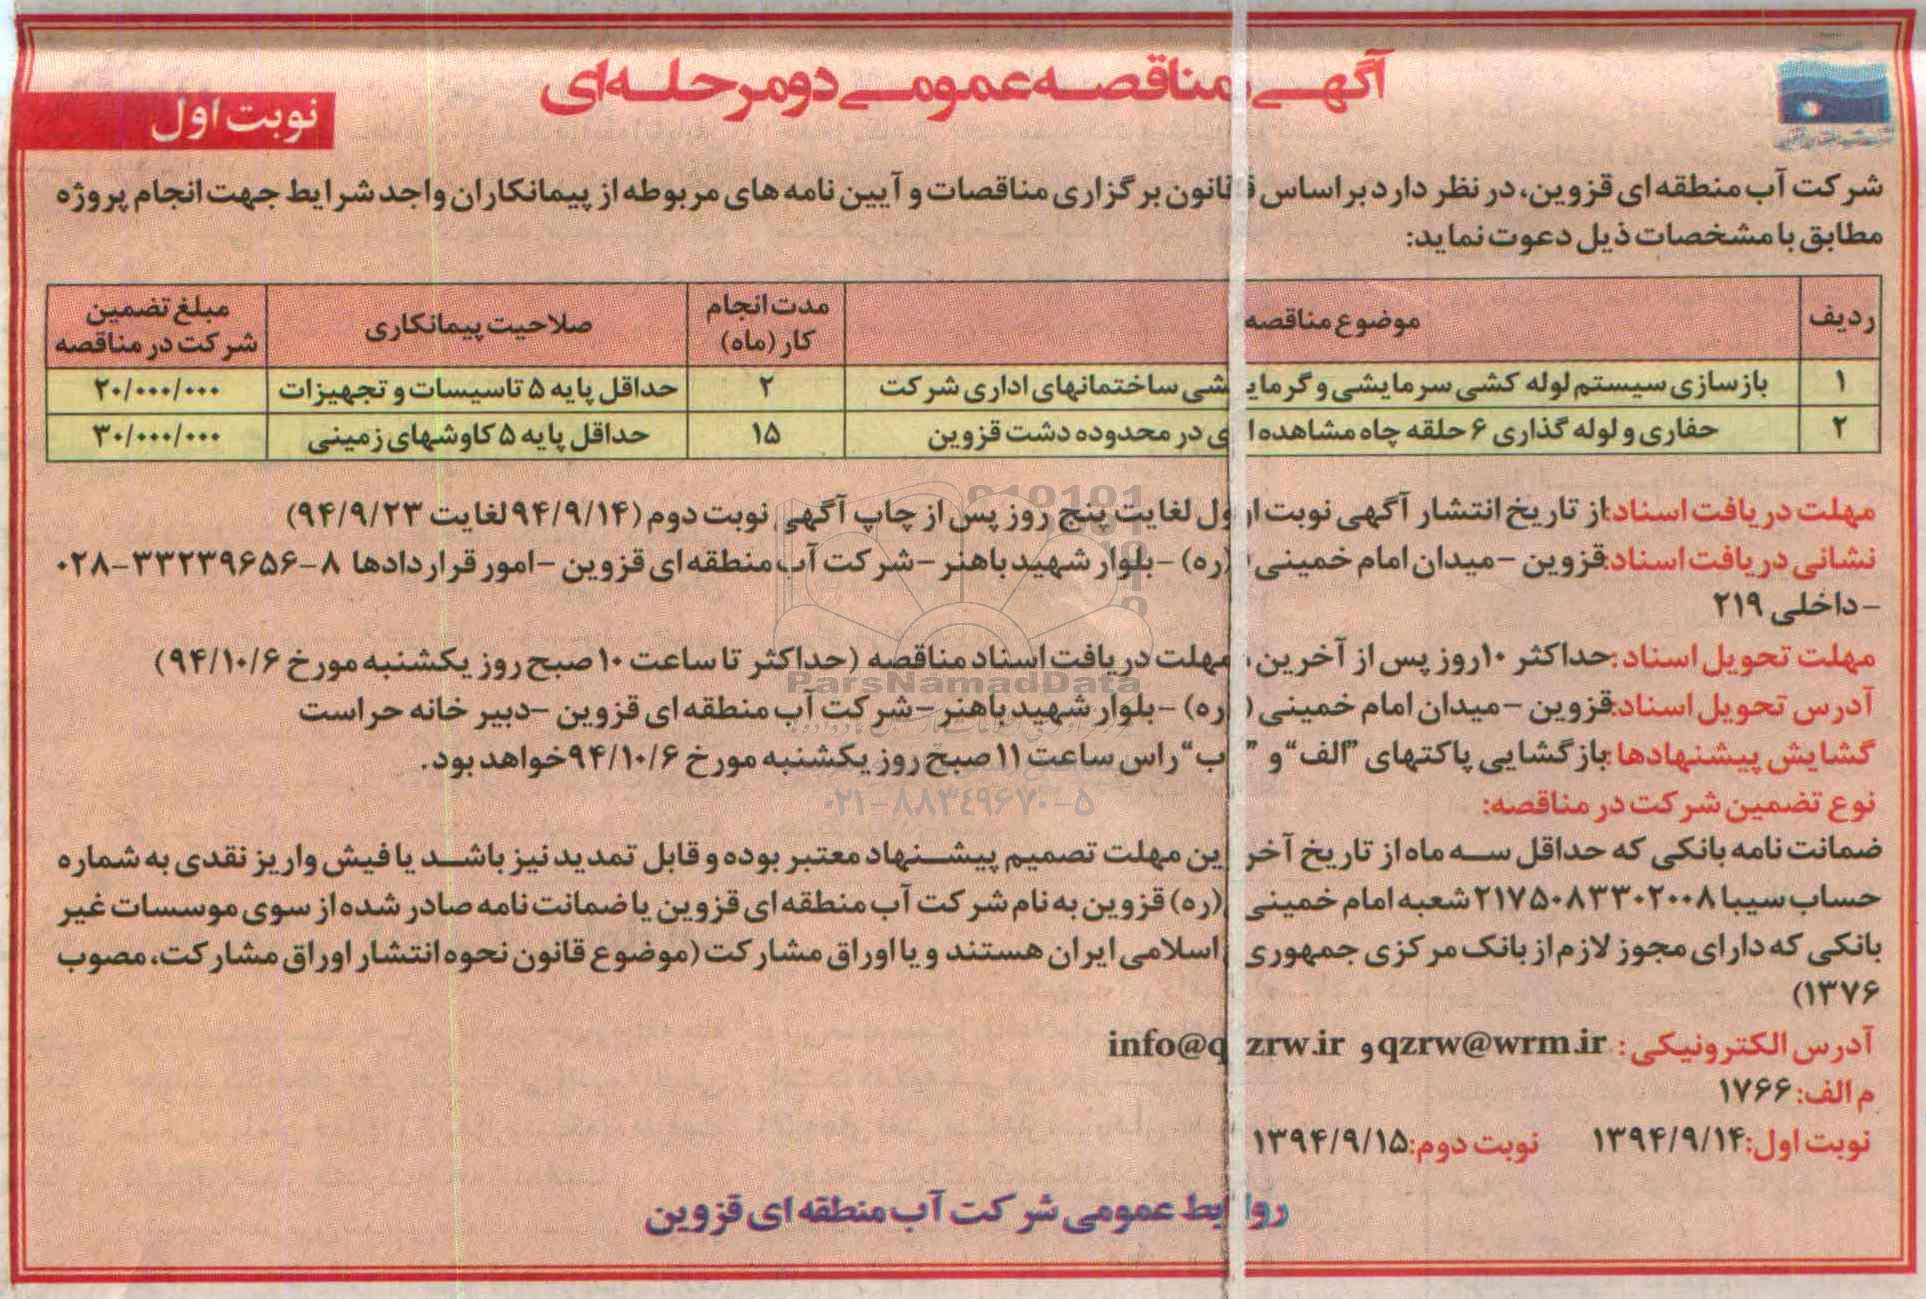 آگهی مناقصه عمومی دو مرحله‌ای
نوبت اول
شرکت آب منطقه ای قزوین، در نظر دارد بر اساس قانون برگزاری مناقصات و آیین نامه های مربوطه از پیمانکاران واجد شرایط جهت انجام پروژه
مطابق با مشخصات ذیل دعوت نماید:
ردیف	موضوع مناقصه	مدت انجام کار (ماه)	صلاحیت پیمانکاری	مبلغ تضمین شرکت در مناقصه
۱	بازسازی سیستم لوله کشی سرمایشی و گرمایشی ساختمانهای اداری شرکت	۲	حداقل پایه ۵ تاسیسات و تجهیزات	۲۰/۰۰۰/۰۰۰
۲	حفاری و لوله گذاری ۶ حلقه چاه مشاهده ای در محدوده دشت قزوین	۱۵	حداقل پایه ۵ کاوشهای زمینی	۳۰/۰۰۰/۰۰۰
مهلت دریافت اسناد: از تاریخ انتشار آگهی نوبت اول لغایت پنج روز پس از چاپ آگهی نوبت دوم (۹۴/۹/۱۴ لغایت ۹۴/۹/۲۳)
نشانی دریافت اسناد: قزوین – میدان امام خمینی (ره) – بلوار شهید باهنر – شرکت آب منطقه ای قزوین – امور قراردادها ۸-۳۳۲۳۹۶۵۶-۰۲۸
– داخلی ۲۱۹
مهلت تحویل اسناد: حداکثر ۱۰ روز پس از آخرین مهلت دریافت اسناد مناقصه (حداکثر تا ساعت ۱۰ صبح روز یکشنبه مورخ ۹۴/۱۰/۶)
آدرس تحویل اسناد: قزوین – میدان امام خمینی (ره) – بلوار شهید باهنر – شرکت آب منطقه ای قزوین – دبیر خانه حراست
گشایش پیشنهادها: بازگشایی پاکتهای "الف" و "ب" راس ساعت ۱۱ صبح روز یکشنبه مورخ ۹۴/۱۰/۶ خواهد بود.
نوع تضمین شرکت در مناقصه:
ضمانت نامه بانکی که حداقل سه ماه از تاریخ آخرین مهلت تصمیم پیشنهاد معتبر بوده و قابل تمدید نیز باشد یا فیش واریز نقدی به شماره
حساب سیبا ۲۱۷۵۰۸۳۳۰۲۰۰۸ شعبه امام خمینی (ره) قزوین به نام شرکت آب منطقه ای قزوین یا ضمانت نامه صادر شده از سوی موسسات غیر
بانکی که دارای مجوز لازم از بانک مرکزی جمهوری اسلامی ایران هستند و یا اوراق مشارکت (موضوع قانون نحوه انتشار اوراق مشارکت، مصوب
۱۳۷۶)
آدرس الکترونیکی: qzrw@wrm.ir و info@qzrw.ir
م الف: ۱۷۶۶
نوبت اول: ۱۳۹۴/۹/۱۴ نوبت دوم: ۱۳۹۴/۹/۱۵
روابط عمومی شرکت آب منطقه ای قزوین
ParsNamadData
۰۲۱-۸۸۳۴۹۶۷۰-۵